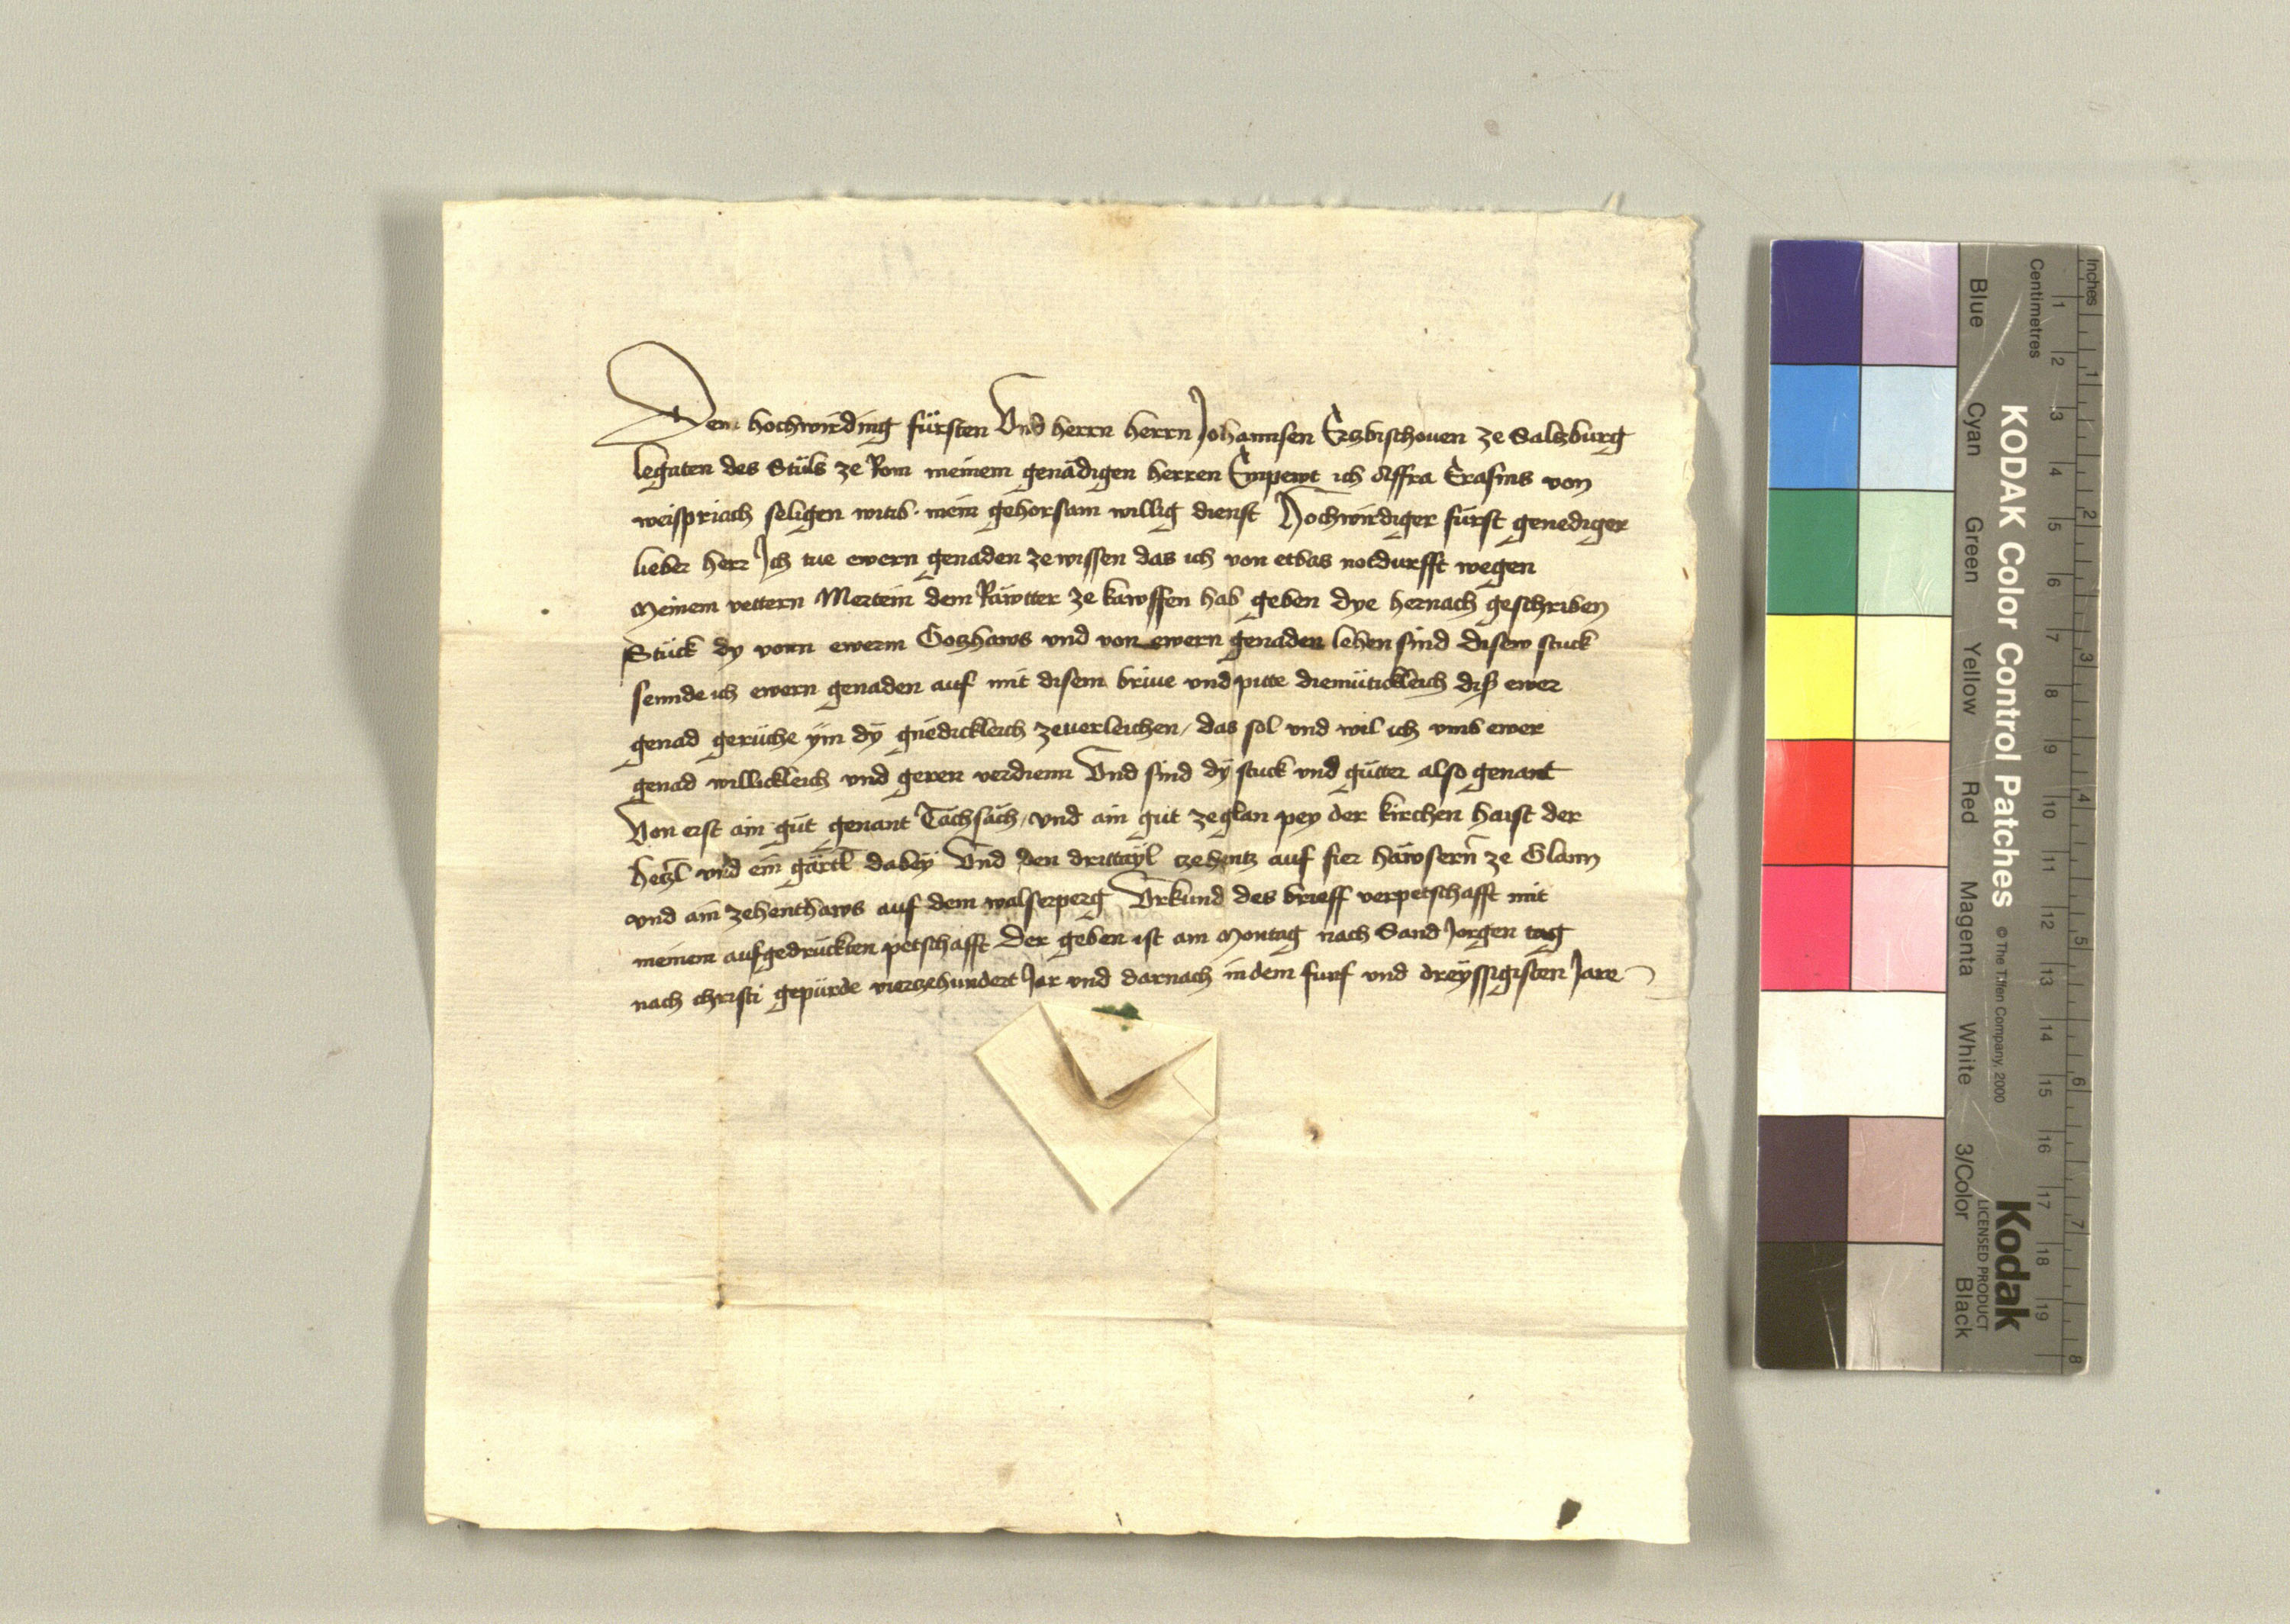 Dem hochwirding fürsten Vnd herrn herrn Johannsen Erczbischouen ze Salczburg
legaten des Stůls ze Rom meinem genädigen herren Enpewt ich Affra Erasms von
weispriach seligen witib · mein gehorsam willig dienst Hochwirdiger fürst genediger
lieber herr Ich tue ewern genaden ze wissen das ich von etbas notdurfft wegen
Meinem vettern Mertein dem Räwtter ze kawffen hab geben dye hernach geschriben
Stück dy vonn ewerm Goczhaws vnd von ewern genaden lehen sind disew stuck
sennde ich ewern genaden auf mit disem briue vnd pitte diemütickleich diß ewer
genad gerüche ÿm dÿ gnedickleich zeuerleichen / das sol vnd wil ich vmb ewer
genad willickleich vnd geren verdienn Vnd sind dÿ stuck vnd gütter also genant
Von erst ain güt genant Tachsäch / vnd ain güt ze glan pey der kirchen haist der
heczl vnd ein gärtl dabeÿ Vnd den drittaÿl czehentz auf fier häwsern ze Glann
vnd ain zehenthaws auf dem walserperg Vrkund des brieff verpetschafft mit
meinem aufgedruckten petschafft Der geben ist am Montag nach Sand Jorgen tag
nach christi gepürde vierczehundert Jar vnd darnach in dem funf vnd dreÿssigisten Jare
Inches
Centimetres
1 2 3 4 5 6 7 8
1 2 3 4 5 6 7 8 9 10 11 12 13 14 15 16 17 18 19
KODAK Color Control Patches © The Tiffen Company, 2000
Kodak
LICENSED PRODUCT
Blue Cyan Green Yellow Red Magenta White 3/Color Black